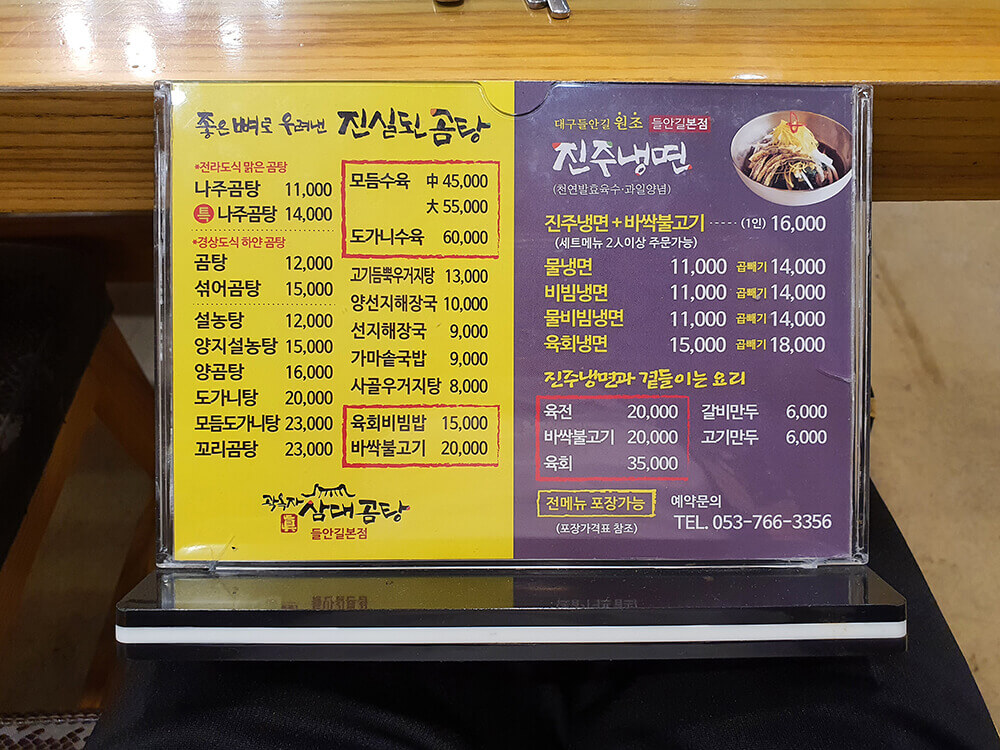 좋은 뼈로 우려낸 진실된 곰탕
*전라도식 맑은 곰탕
나주곰탕 11,000
특 나주곰탕 14,000
*경상도식 하얀 곰탕
곰탕 12,000
섞어곰탕 15,000
설농탕 12,000
양지설농탕 15,000
양곰탕 16,000
도가니탕 20,000
모듬도가니탕 23,000
꼬리곰탕 23,000
모듬수육 中 45,000
大 55,000
도가니수육 60,000
고기듬뿍우거지탕 13,000
양선지해장국 10,000
선지해장국 9,000
가마솥국밥 9,000
사골우거지탕 8,000
육회비빔밥 15,000
바싹불고기 20,000
곽옥자 삼대곰탕
眞
들안길본점
대구들안길 원조 들안길본점
진주냉면
(천연발효육수·과일양념)
진주냉면+바싹불고기 ----- (1인) 16,000
(세트메뉴 2인이상 주문가능)
물냉면 11,000 곱빼기 14,000
비빔냉면 11,000 곱빼기 14,000
물비빔냉면 11,000 곱빼기 14,000
육회냉면 15,000 곱빼기 18,000
진주냉면과 곁들이는 요리
육전 20,000 갈비만두 6,000
바싹불고기 20,000 고기만두 6,000
육회 35,000
전메뉴 포장가능 예약문의
(포장가격표 참조) TEL. 053-766-3356